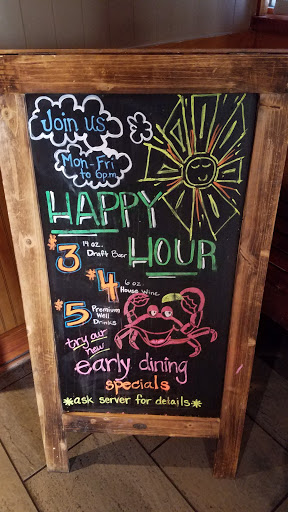 Join us
Mon-Fri
to 6pm
HAPPY
HOUR
$3 14 oz.
Draft Beer
$4 6 oz.
House Wine
$5 Premium
Well
Drinks
try our
new
early dining
specials
*ask server for details*